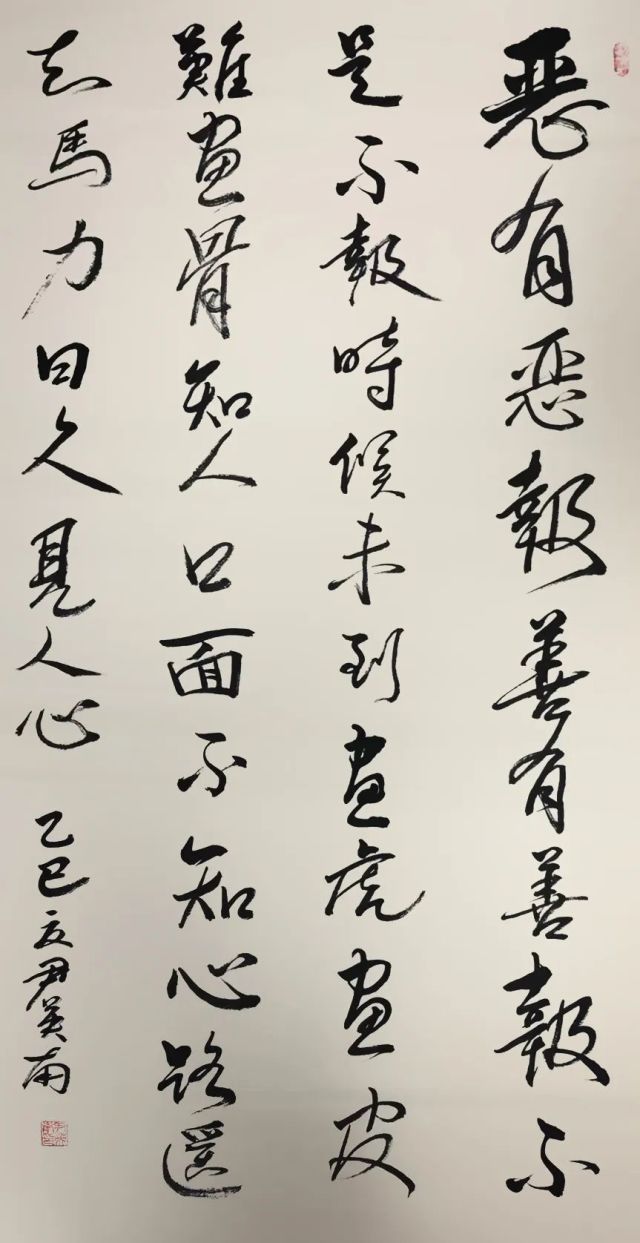 恶有恶報善有善報不
是不報時候未到畫虎畫皮
難畫骨知人口面不知心路遥
知馬力日久見人心 乙巳夏尹美南